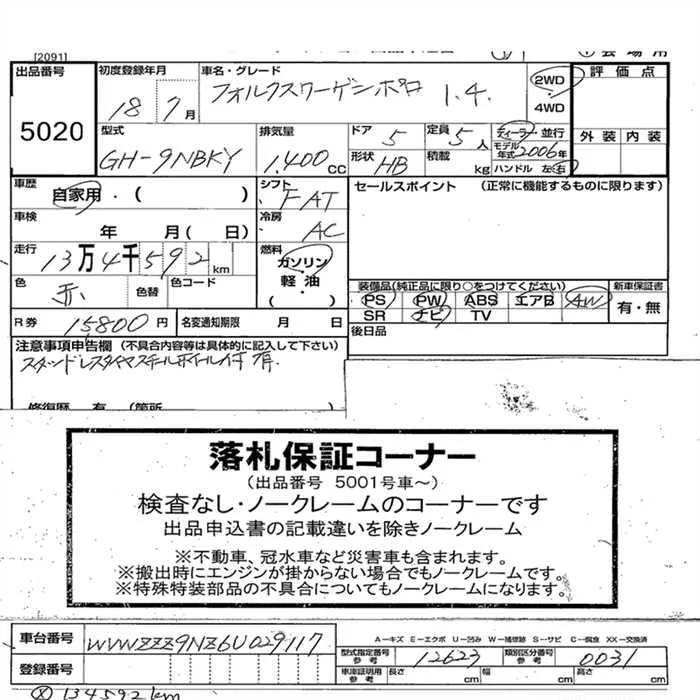 [2091]
出品番号 5020
初度登録年月 18 7月
車名・グレード フォルクスワーゲンポロ 1.4.
2WD ・ 4WD
評価点
外装 内装
型式 GH-9NBKY
排気量 1.400 CC
ドア 5
定員 5人
形状 HB
積載 kg
ディーラー・並行
モデル年式 2006年
ハンドル 左・右
車歴 自家用・( )
シフト FAT
セールスポイント (正常に機能するものに限ります)
車検 年 月( 日)
冷房 AC
走行 13万4千592km
燃料 ガソリン 軽油 ( )
色 赤 色替 色コード
装備品(純正品に限り○をつけてください) 新車保証書
PS PW ABS エアB AW 有・無
SR ナビ TV
R券 15,800円 名変通知期限 月 日
後日品
注意事項申告欄 (不具合内容等は具体的に記入して下さい)
スタッドレスタイヤスチールホイール付 有.
修復歴 有 (箇所
落札保証コーナー
(出品番号 5001号車~)
検査なし・ノークレームのコーナーです
出品申込書の記載違いを除きノークレーム
※不動車、冠水車など災害車も含まれます。
※搬出時にエンジンが掛からない場合でもノークレームです。
※特殊特装部品の不具合についてもノークレームになります。
A－キズ E－エクボ U－凹み W－補修跡 S－サビ C－腐食 XX－交換済
車台番号 WVWZZZ9NZ6U029117
型式指定番号 参考 12623
類別区分番号 参考 0031
登録番号
車庫証明用 参考 長さ cm 幅 cm 高さ cm
134592km